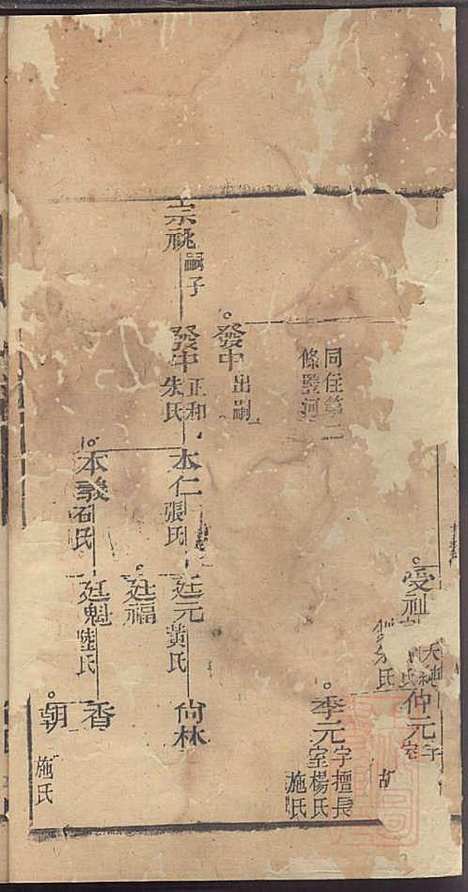 受祉
仲元
季元字擅長
室楊氏
施氏
同住第二
條
發中出嗣
宗祧嗣子
發中正和
朱氏
本仁張氏
廷元黃氏
尙林
廷福
本義石氏
廷魁陸氏
香
朝
施氏